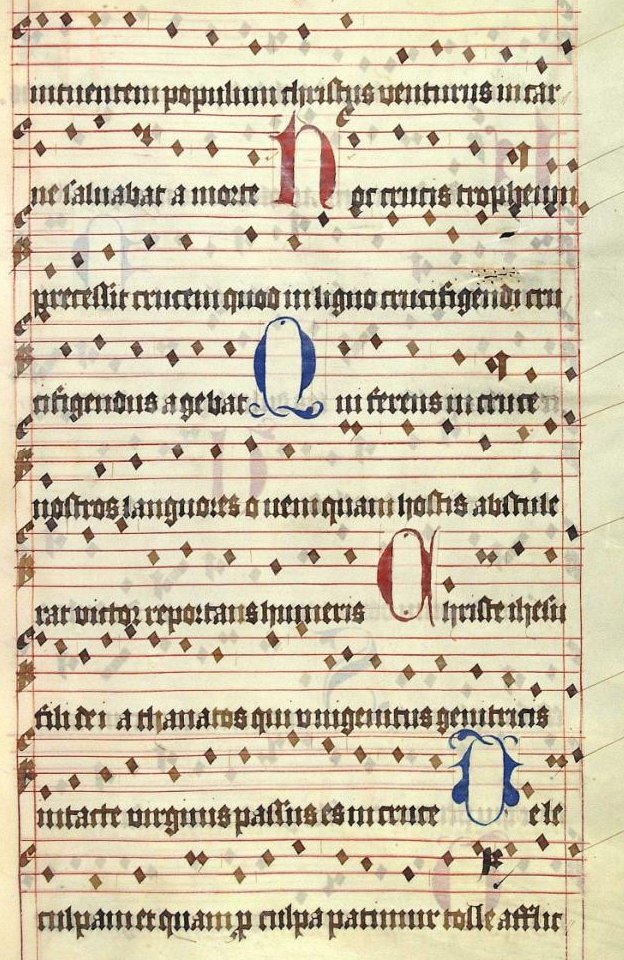 intuentem populum christus venturus in car
ne saluabat a morte Hoc crucis tropheum
precessit crucem quod in ligno crucifigendi cru
cifigendus agebat Qui ferens in cruce
nostros languores ouem quam hostis abstule
rat victor reportans humeris Christe ihesu
fili dei athanatos qui vnigenitus genitricis
intacte virginis passus es in cruce Dele
culpam et quam p culpa patimur tolle afflic